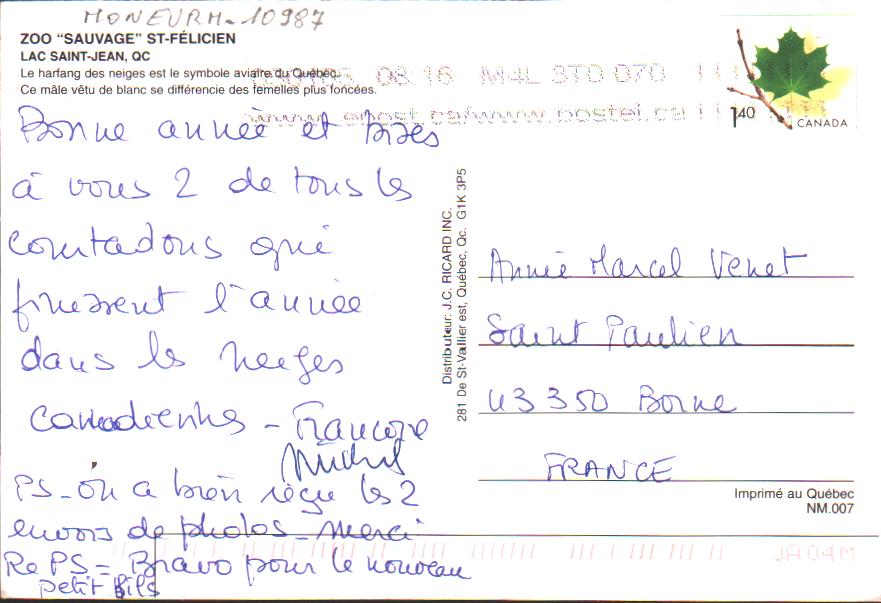 MONEURM-10987
ZOO "SAUVAGE" ST-FÉLICIEN
LAC SAINT-JEAN, QC
Le harfang des neiges est le symbole aviaire du Québec.
Ce mâle vêtu de blanc se différencie des femelles plus foncées.
08:16 M4L 3T0 070
www.epost.ca/www.postel.ca
1.40
CANADA
Bonne année et bises
à vous 2 de tous les
comtadons qui
finissent l'année
dans les neiges
canadiennes - Françoise
Michel
PS - on a bien reçu les 2
envois de photos - merci
Re PS = Bravo pour le nouveau
petit fils
Distributeur: J.C. RICARD INC.
281 De St-Vallier est, Québec, Qc. G1K 3P5
Annie Marcel Venet
Saint Paulien
43350 Borne
FRANCE
Imprimé au Québec
NM.007